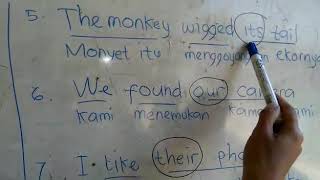 5. The monkey wigged its tail
Monyet itu menggoyangkan ekornya
6. We found our camera
Kami menemukan kamera kami
7. I like their pho